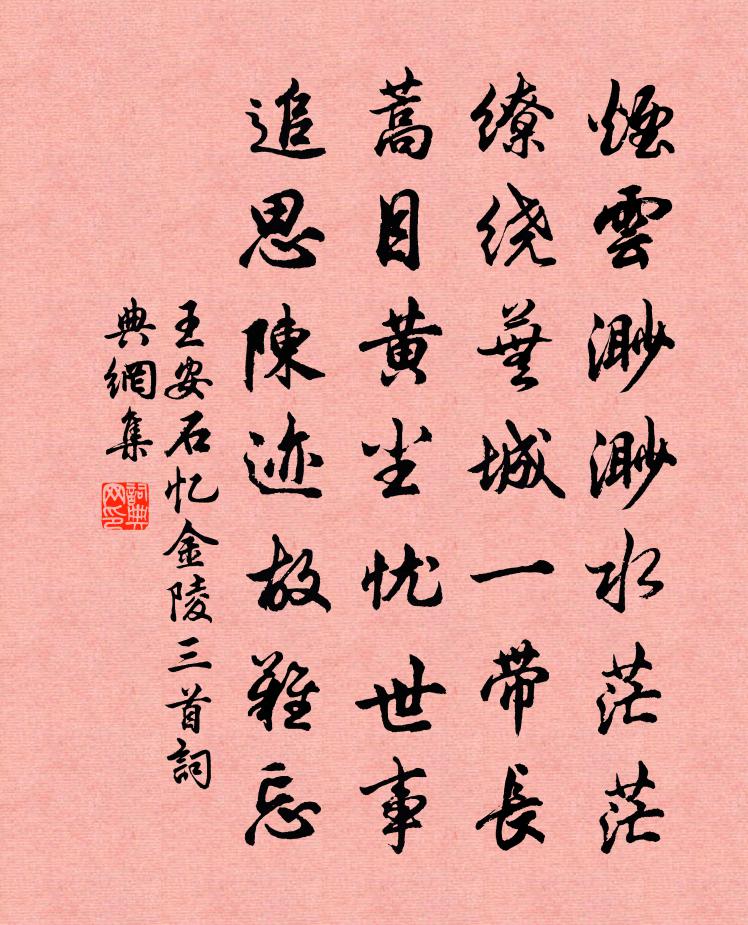 煙雲渺渺水茫茫
繚绕蕪城一带長
蒿目黄尘忧世事
追思陳迹故難忘
王安石忆金陵三首詞
典網集
詞典
网印